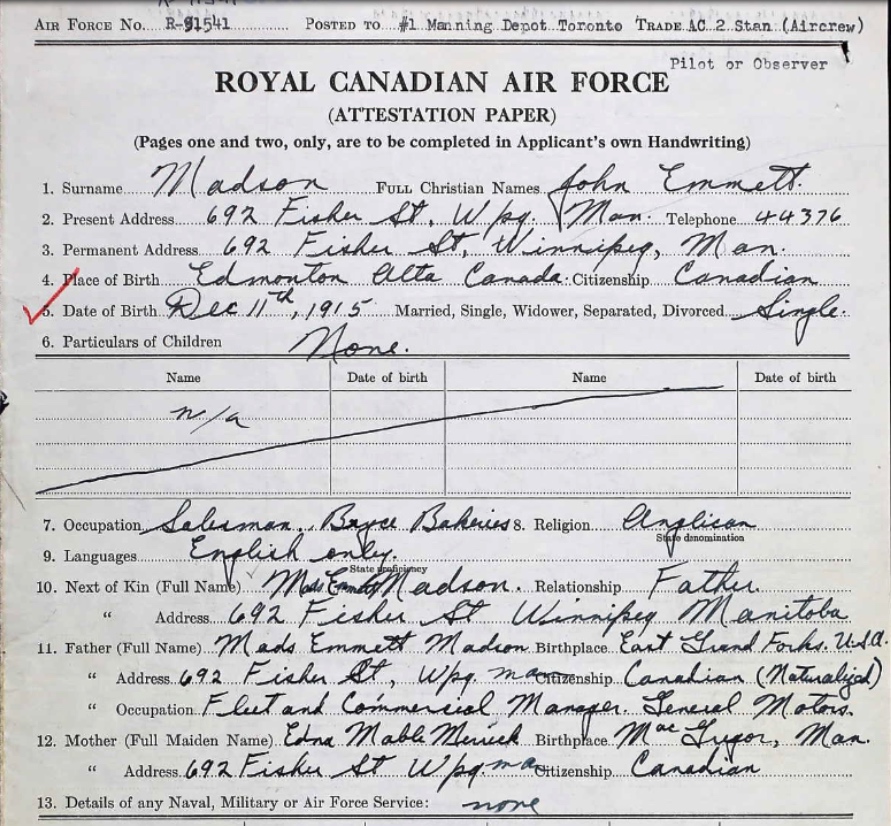 AIR FORCE NO. R-91541 POSTED TO #1 Manning Depot Toronto TRADE AC 2 Stan (Aircrew)
Pilot or Observer
ROYAL CANADIAN AIR FORCE
(ATTESTATION PAPER)
(Pages one and two, only, are to be completed in Applicant's own Handwriting)
1. Surname Madson FULL Christian Names John Emmett.
2. Present Address 692 Fisher St, Wpg. Man. Telephone 44376
3. Permanent Address 692 Fisher St, Winnipeg, Man.
4. Place of Birth Edmonton Alta Canada. Citizenship Canadian
5. Date of Birth Dec 11th, 1915 Married, Single, Widower, Separated, Divorced Single.
6. Particulars of Children None.
Name Date of birth Name Date of birth
n/a
7. Occupation Salesman. Bryce Bakeries 8. Religion Anglican
State denomination
9. Languages English only.
State proficiency
10. Next of Kin (Full Name) Mads Emmett Madson. Relationship Father.
" Address 692 Fisher St Winnipeg Manitoba
11. Father (Full Name) Mads Emmett Madson Birthplace East Grand Forks. U.S.A.
" Address 692 Fisher St, Wpg. man Citizenship Canadian (Naturalized)
" Occupation Fleet and Commercial Manager. General Motors.
12. Mother (Full Maiden Name) Edna Mable Birthplace MacGregor, Man.
" Address 692 Fisher St Wpg. ma Citizenship Canadian
13. Details of any Naval, Military or Air Force Service: none